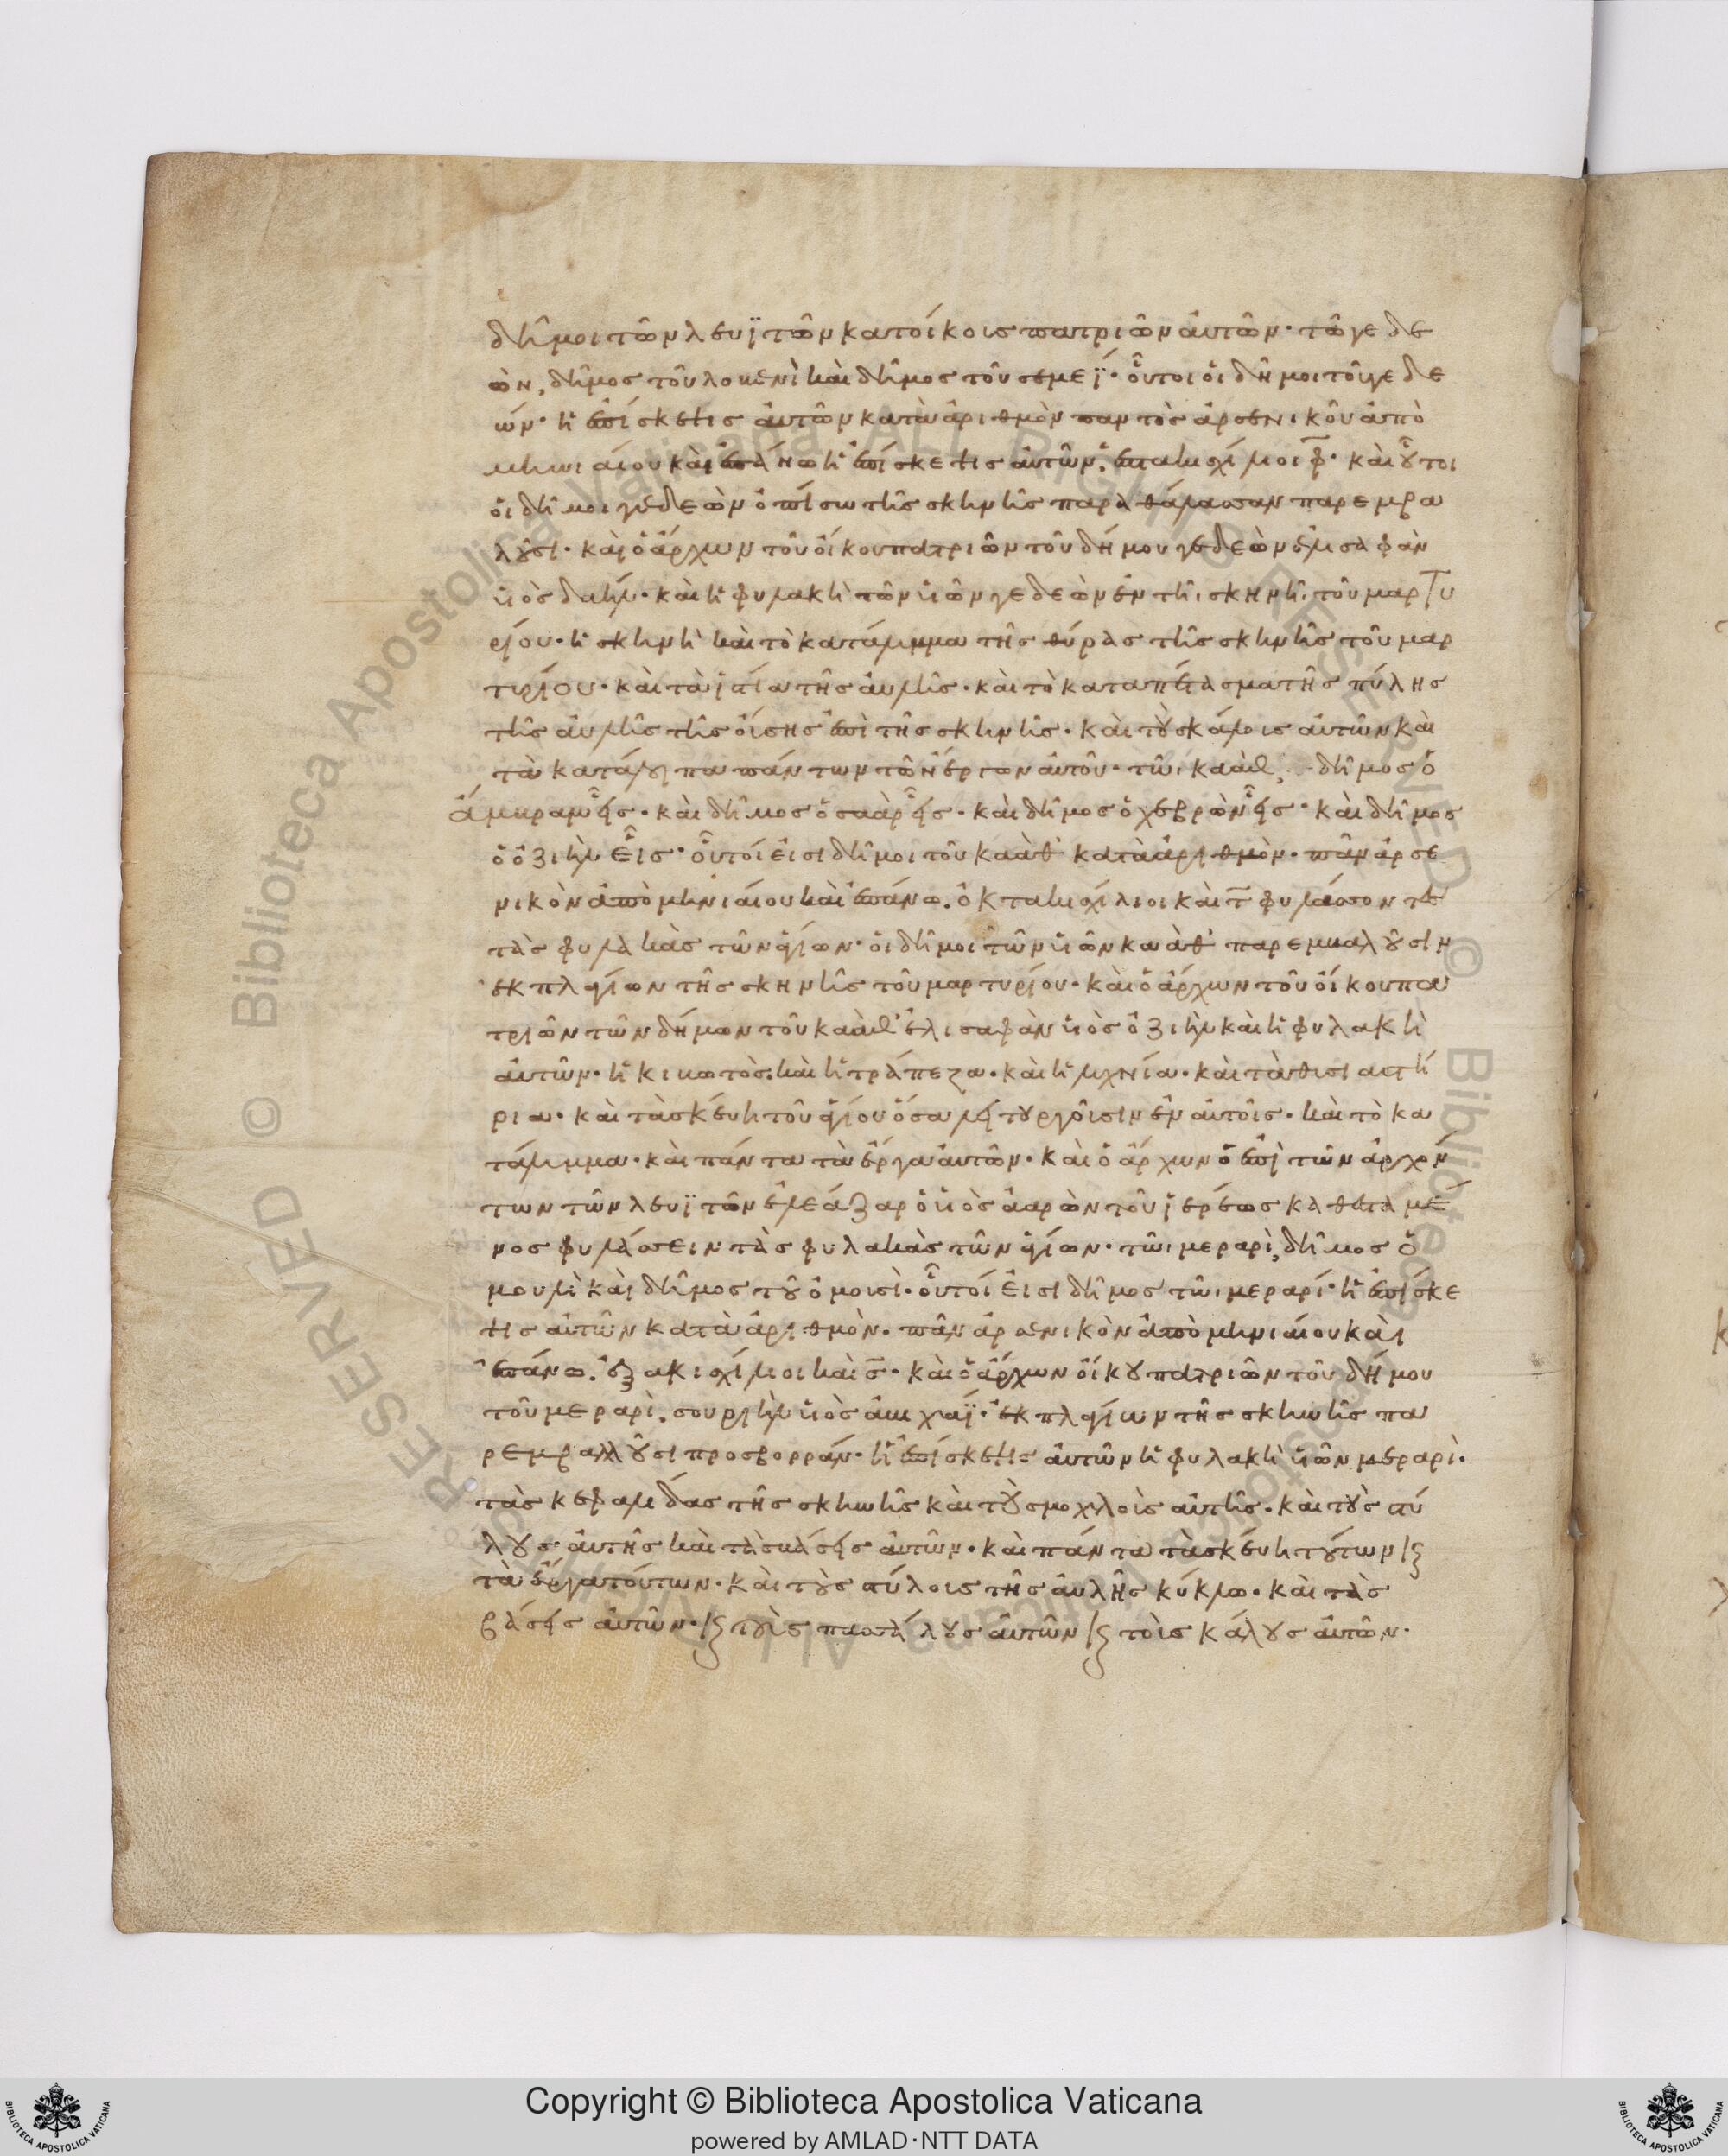 δῆμοι τῶν λευϊτῶν κατοίκοις πατριῶν αὐτῶν· τῶ γεδε
ὼν, δῆμος τοῦ λοβενὶ καὶ δῆμος τοῦ σεμεΐ· οὗτοι οἱ δῆμοι τοῦ γεδε
ών· ἡ ἐπίσκεψις αὐτῶν κατὰ ἀριθμὸν παντὸς ἀρσενικοῦ ἀπὸ
μηνιαίου καὶ ἐπάνω ἡ ἐπίσκεψις αὐτῶν, ἑπτακισχίλιοι φ· καὶ οὗτοι
οἱ δῆμοι γεδεὼν ὀπίσω τῆς σκηνῆς παρὰ θάλασσαν παρεμβα
λοῦσι· καὶ ὁ ἄρχων τοῦ οἴκου πατριῶν τοῦ δήμου γεδεὼν ἐλισαφὰν
υἱὸς δαήλ· καὶ ἡ φυλακὴ τῶν υἱῶν γεδεὼν ἐν τῆι σκηνῆι τοῦ μαρτυ
ρίου· ἡ σκηνὴ καὶ τὸ κατάλυμμα τῆς θύρας τῆς σκηνῆς τοῦ μαρ
τυρίου· καὶ τὰ ἱστία τῆς αὐλῆς· καὶ τὸ καταπέτασμα τῆς πύλης
τῆς αὐλῆς τῆς οὔσης ἐπὶ τῆς σκηνῆς· καὶ τοὺς κάλοις αὐτῶν καὶ
τὰ κατάλοιπα πάντων τῶν ἔργων αὐτοῦ· τῶι καὰθ, δῆμος ὁ
ἀμβραμεῖς· καὶ δῆμος ὁ σααρεῖς· καὶ δῆμος ὁ χεβρὼνεῖς· καὶ δῆμος
ὁ ὀζιὴλεῖς· οὗτοί εἰσι δῆμοι τοῦ καὰθ κατὰ ἀριθμὸν· πᾶν ἀρσε
νικὸν ἀπὸ μηνιαίου καὶ ἐπάνω, ὀκτακισχίλιοι καὶ τ φυλάσσοντες
τὰς φυλακὰς τῶν ἁγίων· οἱ δῆμοι τῶν υἱῶν καὰθ παρεμβαλοῦσιν
ἐκ πλαγίων τῆς σκηνῆς τοῦ μαρτυρίου· καὶ ὁ ἄρχων τοῦ οἴκου πα
τριῶν τῶν δήμων τοῦ καὰθ ἐλισαφὰν υἱὸς ὀζιὴλ καὶ ἡ φυλακὴ
αὐτῶν· ἡ κιβωτὸς· καὶ ἡ τράπεζα· καὶ ἡ λυχνία· καὶ τὰ θυσιαστή
ρια· καὶ τὰ σκεύη τοῦ ἁγίου ὅσα λειτουργοῦσιν ἐν αὐτοῖς· καὶ τὸ κα
τάλυμμα· καὶ πάντα τὰ ἔργα αὐτῶν· καὶ ὁ ἄρχων ὁ ἐπὶ τῶν ἀρχόν
των τῶν λευϊτῶν ἐλεάζαρ ὁ υἱὸς ἀαρὼν τοῦ ἱερέως καθεσταμέ
νος φυλάσσειν τὰς φυλακὰς τῶν ἁγίων· τῶι μεραρὶ, δῆμος ὁ
μουλὶ καὶ δῆμος τοῦ ὁμουσὶ· οὗτοί εἰσι δῆμος τῶι μεραρί· ἡ ἐπίσκε
ψις αὐτῶν κατὰ ἀριθμὸν· πᾶν ἀρσενικὸν ἀπὸ μηνιαίου καὶ
ἐπάνω, ἑξακισχίλιοι καὶ σ· καὶ ὁ ἄρχων οἴκου πατριῶν τοῦ δήμου
τοῦ μεραρὶ, σουριὴλ υἱὸς ἀβιχαΐ· ἐκ πλαγίων τῆς σκηνῆς πα
ρεμβαλλοῦσι προσβορράν· ἡ ἐπίσκεψις αὐτῶν ἡ φυλακὴ υἱῶν μεραρὶ·
τὰς κεφαλίδας τῆς σκηνῆς καὶ τοὺς μοχλοὺς αὐτῆς· καὶ τοὺς στύ
λους αὐτῆς καὶ τὰς βάσεις αὐτῶν· καὶ πάντα τὰ σκεύη τούτων καὶ
τὰ ἔργα τούτων· καὶ τοὺς στύλοις τῆς αὐλῆς κύκλω· καὶ τὰς
βάσεις αὐτῶν· καὶ τοὺς πασσάλους αὐτῶν καὶ τοὺς κάλους αὐτῶν·
Copyright © Biblioteca Apostolica Vaticana
powered by AMLAD·NTT DATA